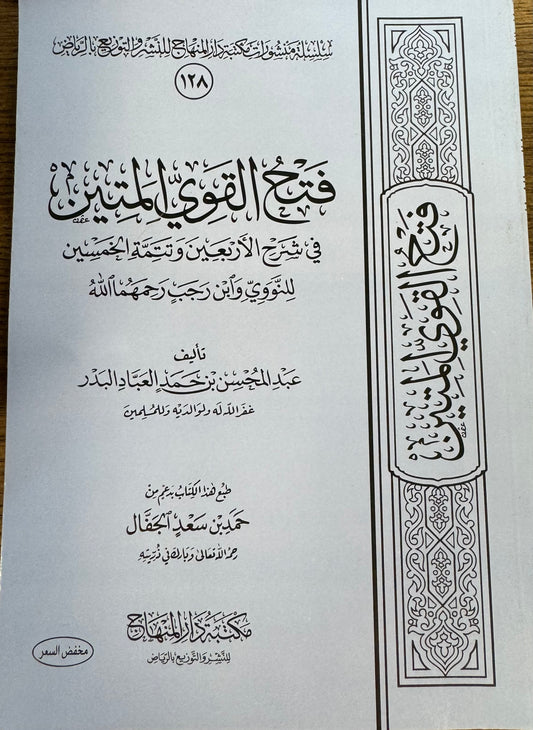 سلسلة منشورات مكتبة دار المنهاج للنشر والتوزيع بالرياض
١٢٨
فَتْحُ القَوِيِّ المَتِين
في شرح الأربعين وتتمة الخمسين
للنووي وابن رجب رحمهما الله
تأليف
عبد المحسن بن حمد العباد البدر
غفر الله له ولوالديه وللمسلمين
طبع هذا الكتاب بدعم من
حمد بن سعد الجفال
رحمه الله تعالى وبارك في ذريته
مكتبة دار المنهاج
للنشر والتوزيع بالرياض
مخفض السعر
فتح القوي المتين